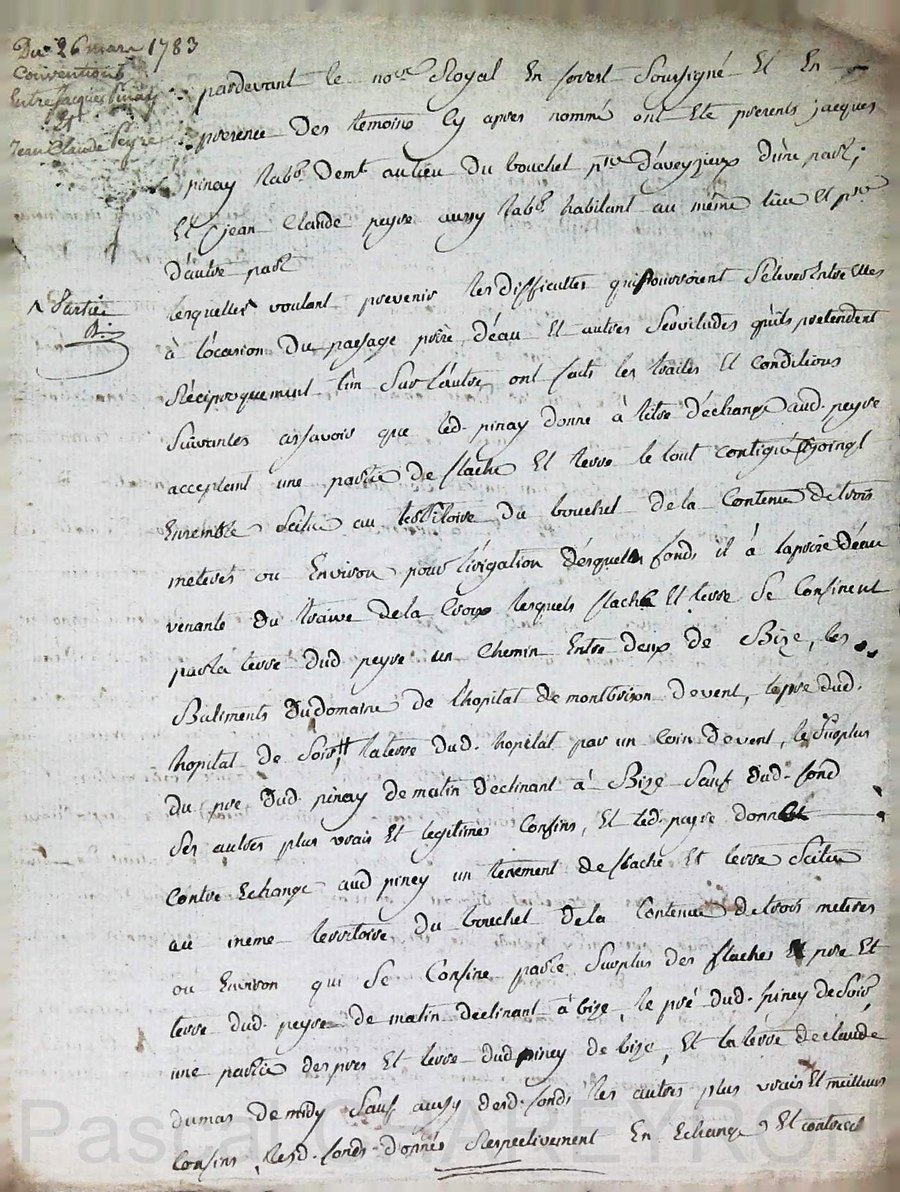 Du 26 mars 1783
Conventions
Entre Jacques Pinay
Et
Jean Claude Peyre
pardevant le nore Royal En forest Soussigné Et En
presence Des temoins Cy apres nommé ont Eté presents jacques
pinay habt demt au lieu du bouchet pse d'aveyzieux d'une part;
Et jean Claude peyre aussy labr habitant au même lieu Et pse
d'autre part
lesquelles ^ voulant prevenir les difficultes qui pourroient S'elever Entre Elles
^ Partie
à l'ocasion Du passage prise d'éau Et autres Servitudes qu'ils pretendent
Réciproquement l'un Sur l'autre, ont faits les traites Et Conditions
Suivantes assavoir que led. pinay donne à titre d'échange aud. peyre
acceptent une partie De flache Et terre le tout contigue Et joingt
Ensemble Scitue au territoire Du bouchet de la Contenue de trois
meteres ou Environ pour l'irigation desquels fonds il à la prise d'éau
venante Du de la Croix lesquels flache Et terre Se Confinent
par la terre dud peyre un Chemin Entre deux de Bize, les
Batiments Du domaine de l'hopital de montbrison de vent, le pre dud.
hopital de Soir, la terre dud. hopital par un Coin de vent, le Surplus
Du pre dud. pinay de matin declinant à Bize Sauf dud. fond
Ses autres plus vrais Et legitimes Confins, Et led. peyre donne
Contre Echange aud piney un tenement de flache Et terre Scitue
au meme territoire Du bouchet de la Contenue de trois meteres
ou Environ qui Se Confine par le Surplus des flaches Et pre Et
terre dud. peyre de matin declinant à bize, le pré dud. piney de Soir,
une partie des pres Et terre dud piney de bize, Et la terre de claude
dumas de midy Sauf aussy desd. fonds les autres plus vrais Et meilleurs
Confins, lesd. fonds donnés Respectivement En Echange Et contre
Pascal CHAREYRON